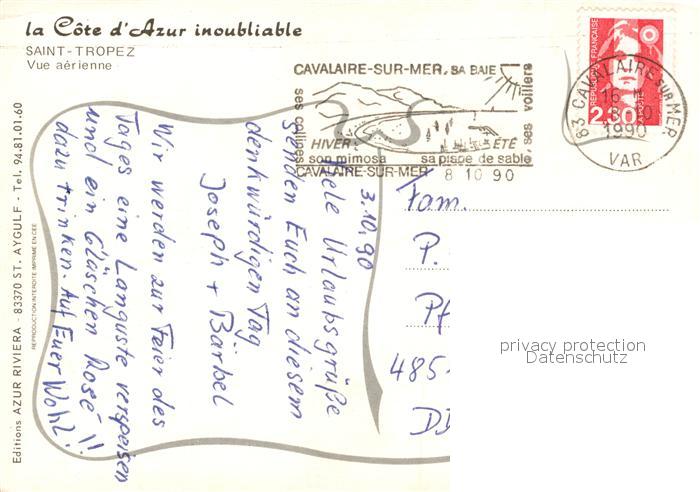 la Côte d'Azur inoubliable
SAINT-TROPEZ
Vue aérienne
Editions AZUR RIVIERA - 83370 ST. AYGULF - Tel. 94.81.01.60
REPRODUCTION INTERDITE IMPRIME EN CEE
CAVALAIRE-SUR-MER, SA BAIE
ses collines
ses voiliers
HIVER
ÉTÉ
son mimosa
sa plage de sable
CAVALAIRE-SUR-MER
8 10 90
83 CAVALAIRE SUR MER
16 H
1990
VAR
REPUBLIQUE FRANÇAISE
2,30
LA POSTE
3.10.90
Viele Urlaubsgrüße
senden Euch an diesem
denkwürdigen Tag
Joseph + Bärbel
Wir werden zur Feier des
Tages eine Languste verspeisen
und ein Gläschen Rosé !!
dazu trinken. Auf Euer Wohl!
Fam.
P.
Pf
485
DD
privacy protection
Datenschutz